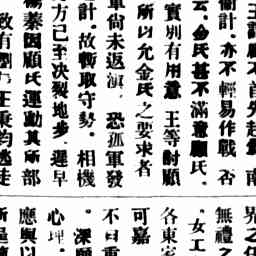 衝計。亦不輕易作戰 否
云。金氏甚不滿意顧氏。
實別有用意 王等對顧
所以允金氏之要求者
軍尚未返滇。恐孤軍發
計。故暫取守勢。相機
方已至決裂地步。遲早
楊蓁因顧氏運動其所部
致有劉 王秉鈞逃徒
界之任
無禮之
。女工
各東家
可嘉
不日重
深願
心理。
應與以